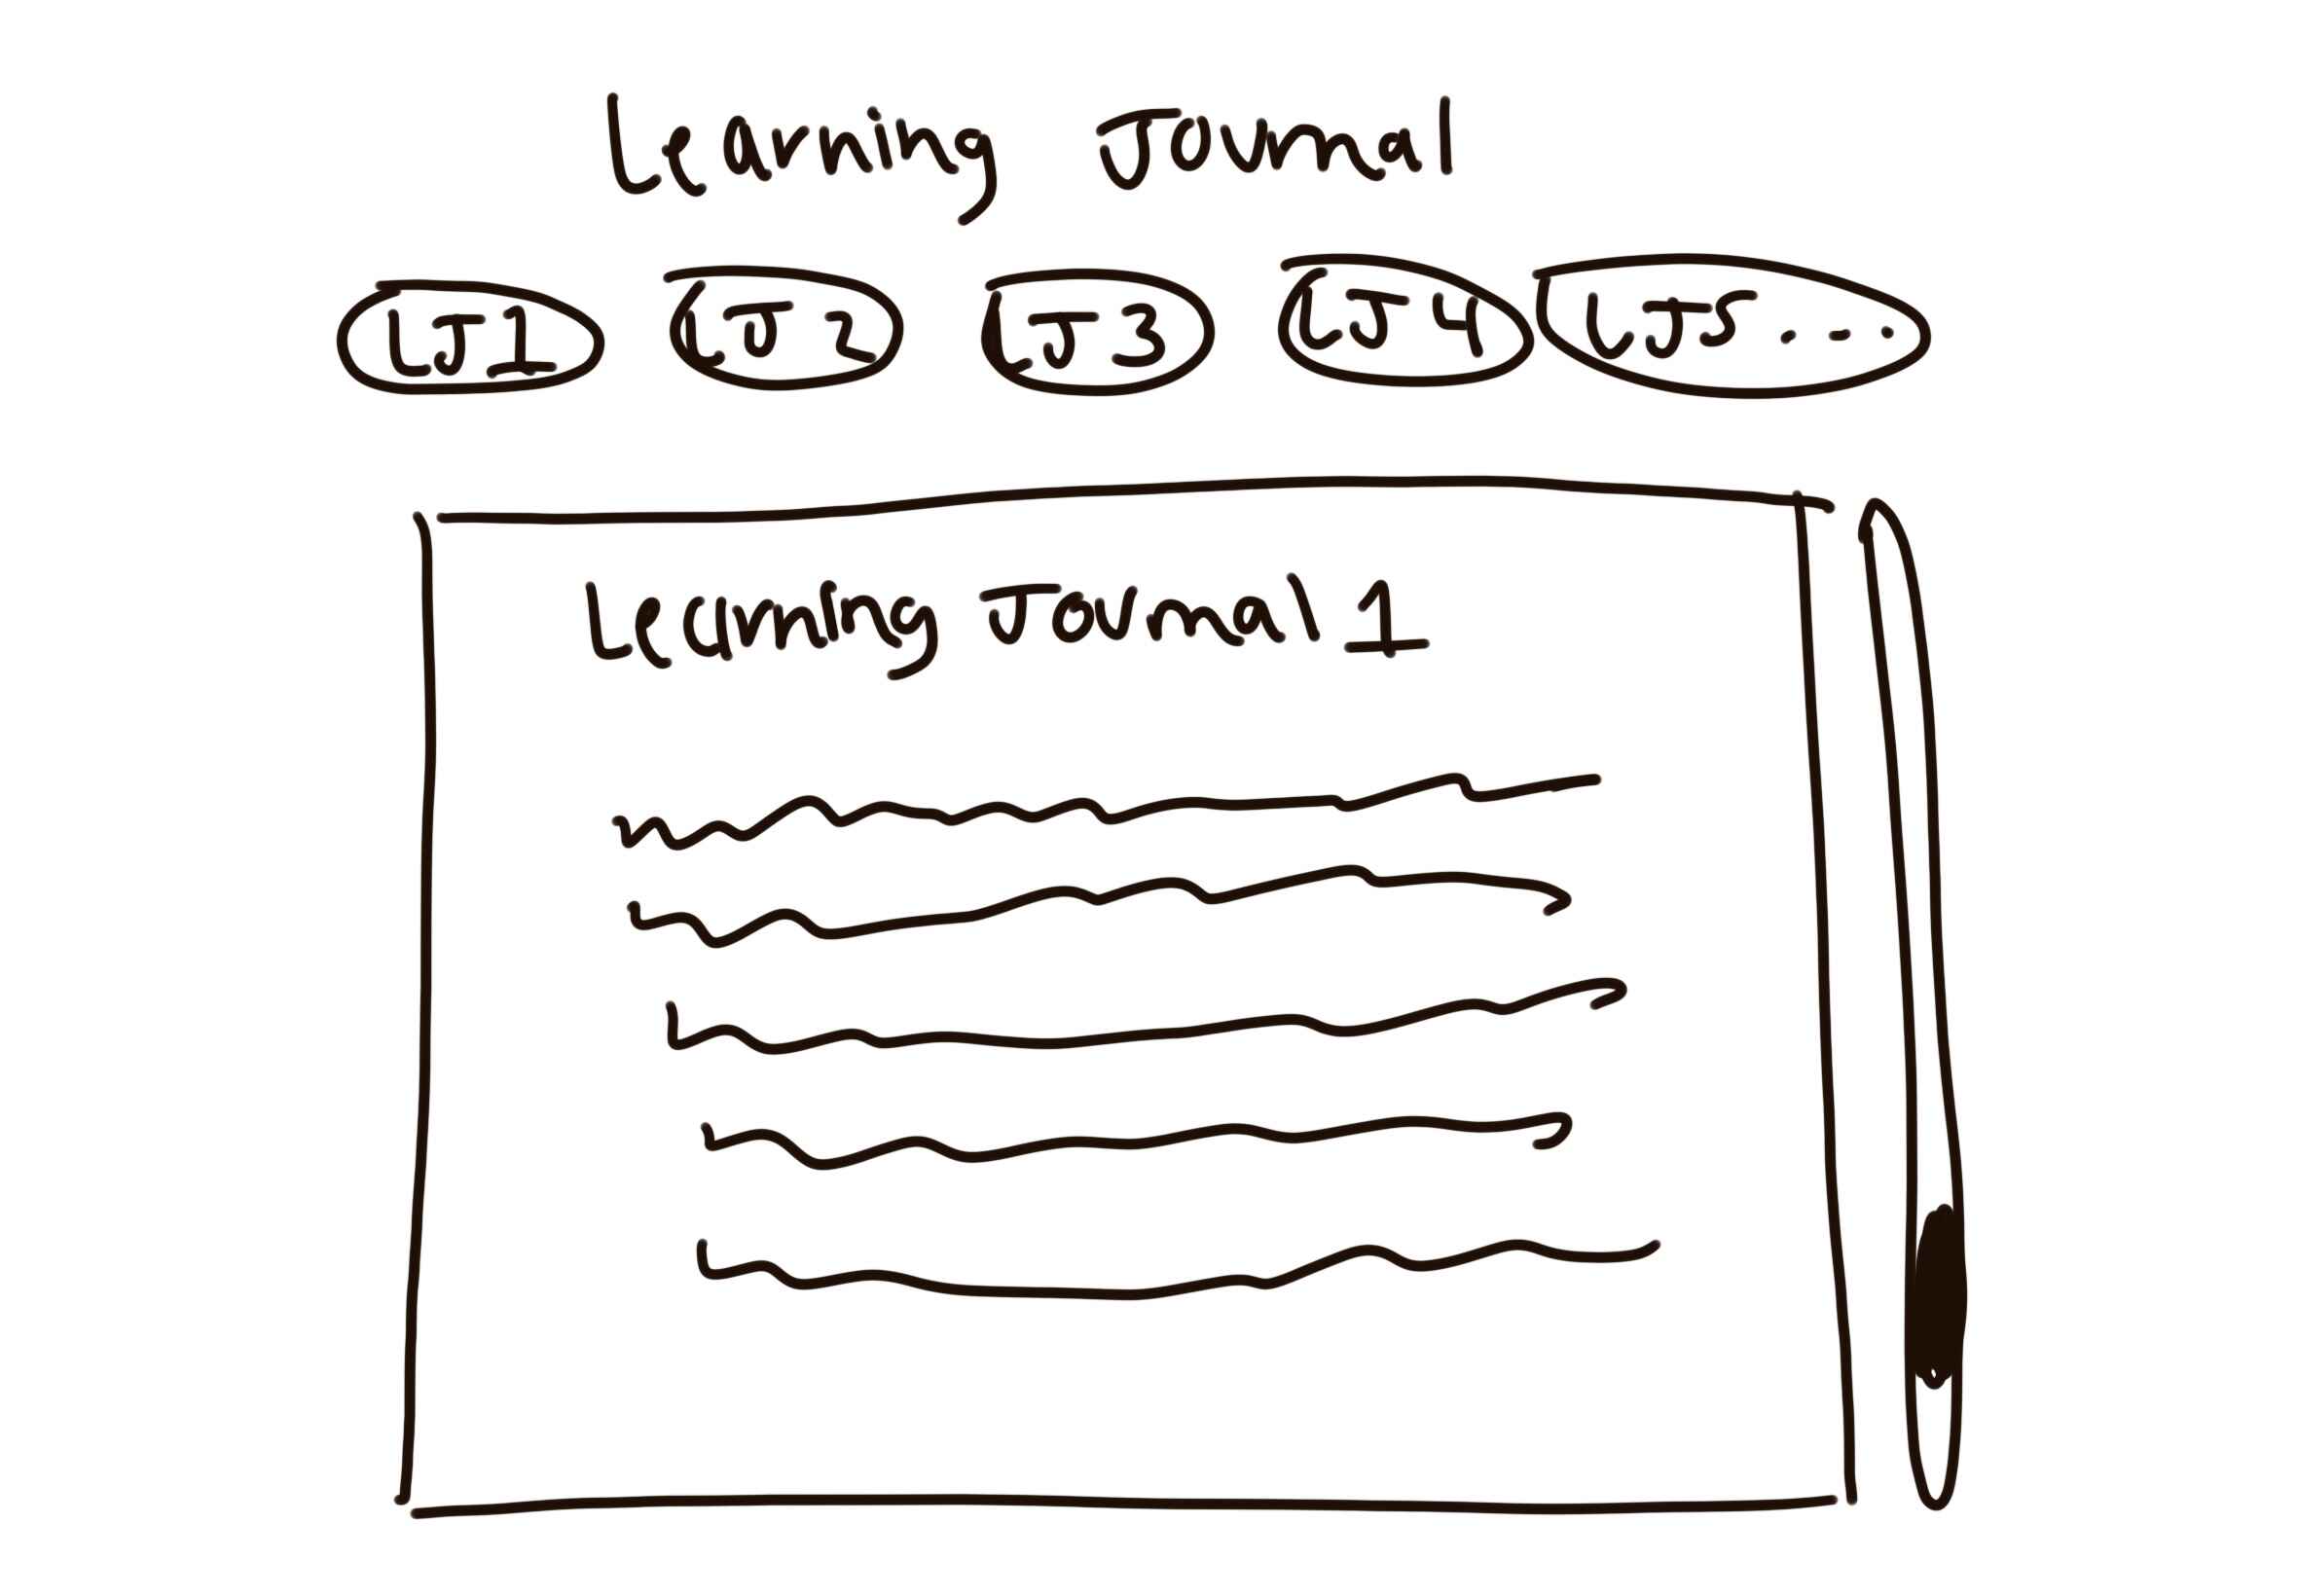 Learning Journal
LJ1 LJ2 LJ3 LJ4 LJ5....
Learning Journal 1